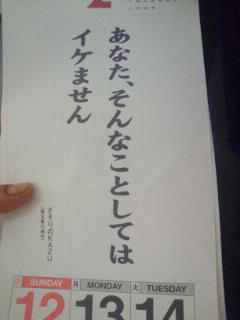 2
あなた、そんなことしては
イケません
さそりのKAZU
日 SUNDAY
月 MONDAY
火 TUESDAY
12
13
14